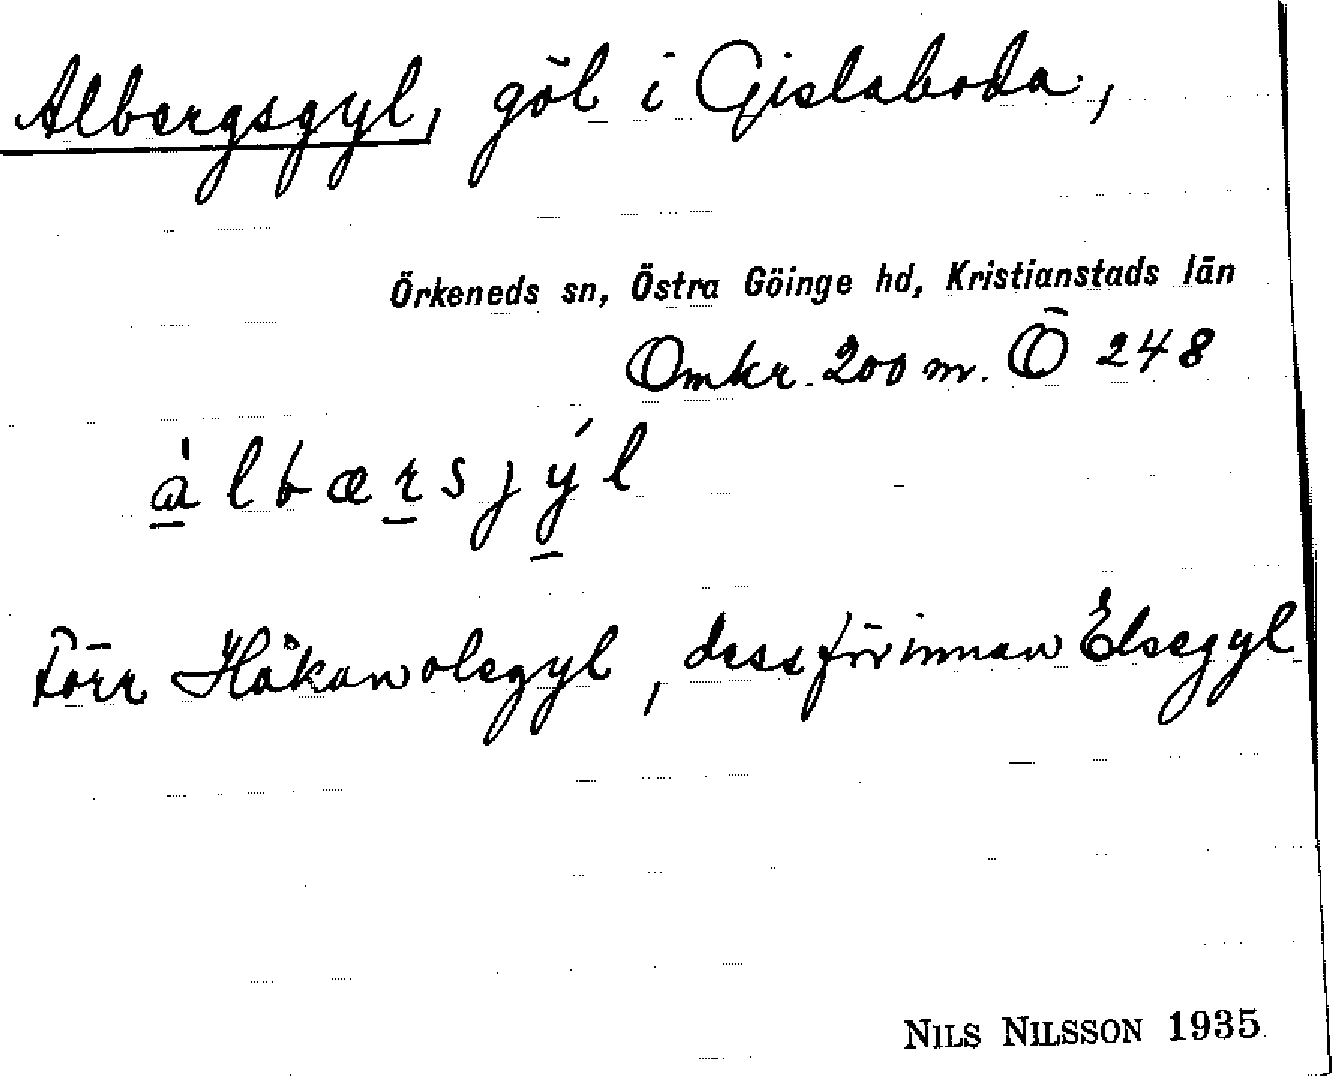 Albergsgyl, göl i Gislaboda,
Örkeneds sn, Östra Göinge hd, Kristianstads län
Omkr. 200 m. Ö 248
a̲̍lbær̲sjý̲l
Förr Håkanolsgyl, dessförinnan Elsegyl
NILS NILSSON 1935